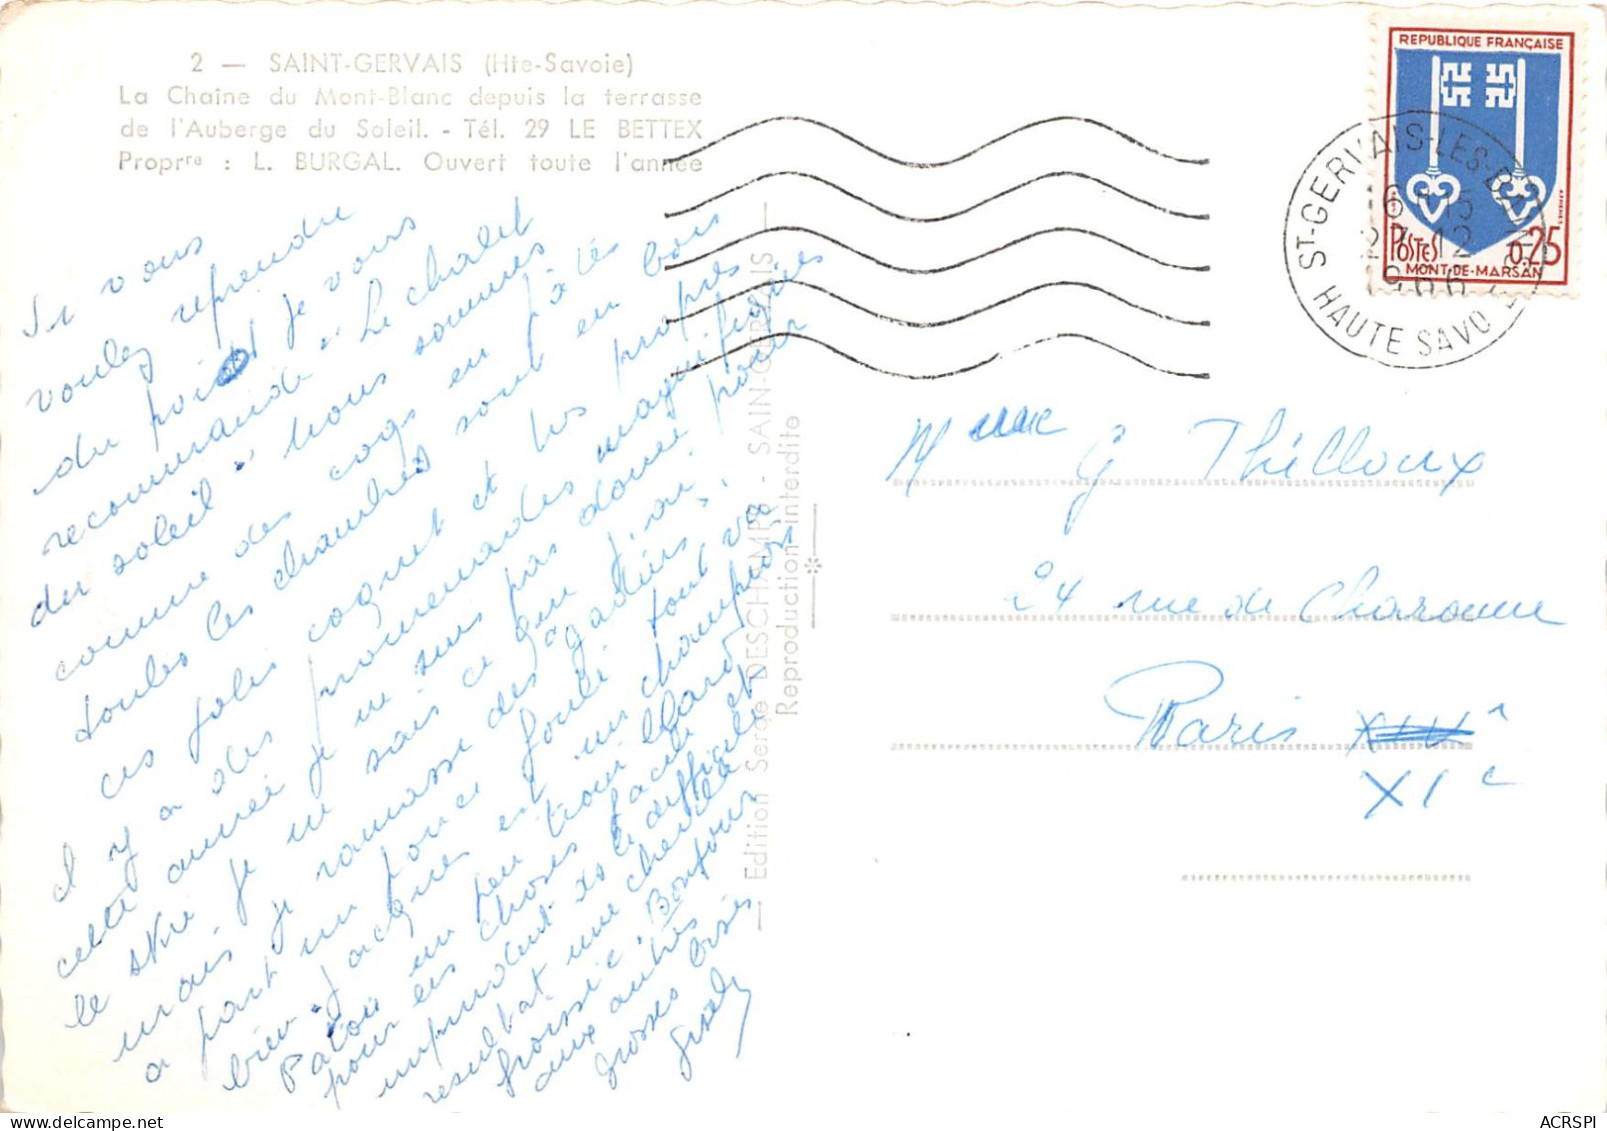 2 — SAINT-GERVAIS (Hte-Savoie)
La Chaîne du Mont-Blanc depuis la terrasse
de l'Auberge du Soleil. - Tél. 29 LE BETTEX
Proprre : L. BURGAL. Ouvert toute l'année
Si vous
voulez reprendre
du poids je vous
recommande "Le chalet
du soleil" nous sommes
comme des coqs en pâtés
toutes les chambres sont en bois
ces jolis coquet et très propres
il y a des promenades magnifiques
cette année je ne suis pas douée pour
le skie je ne sais ce que j'ai
mais je ramasse des "gadins",
a part un pouce foulé tout va
bien. Jacques est un champion
Patou un peu trop
pour les choses faciles et
imprudent ds le difficile
résultat une cheville
froissée. Bonjour
aux autres
grosses bises
Gisèle
Edition Serge DESCHAMPS - SAINT-GERVAIS —
Reproduction interdite
REPUBLIQUE FRANÇAISE
POSTES 0,25
MONT-DE-MARSAN
ST-GERVAIS-LES-BAINS
16 H 15
27-12
1966
HAUTE SAVOIE
Mme G Thilloux
24 rue de Charonne
Paris
XIe
ACRSPI